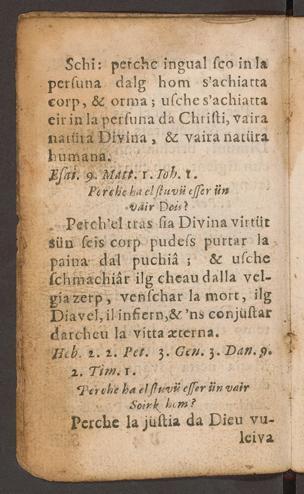 Schi: perche ingual sco in la
persuna dalg hom s'achiatta
corp, & orma; usche s'achiatta
eir in la persuna da Christi, vaira
natüra Divina, & vaira natüra
humana.
Esai. 9. Matt. 1. Ioh. 1.
Perche ha el stuvü esser ün
vair Deis?
Perch'el tras sia Divina virtüt
sün seis corp pudess purtar la
paina dal puchiâ; & usche
schmachiâr ilg cheau dalla vel-
gia zerp, venschar la mort, ilg
Diavel, il infiern, & 'ns conjustar
darcheu la vitta æterna.
Heb. 2. 2. Pet. 3. Gen. 3. Dan. 9.
2. Tim. 1.
Perche ha el stuvü esser ün vair
Soirk hom?
Perche la justia da Dieu vu-
leiva